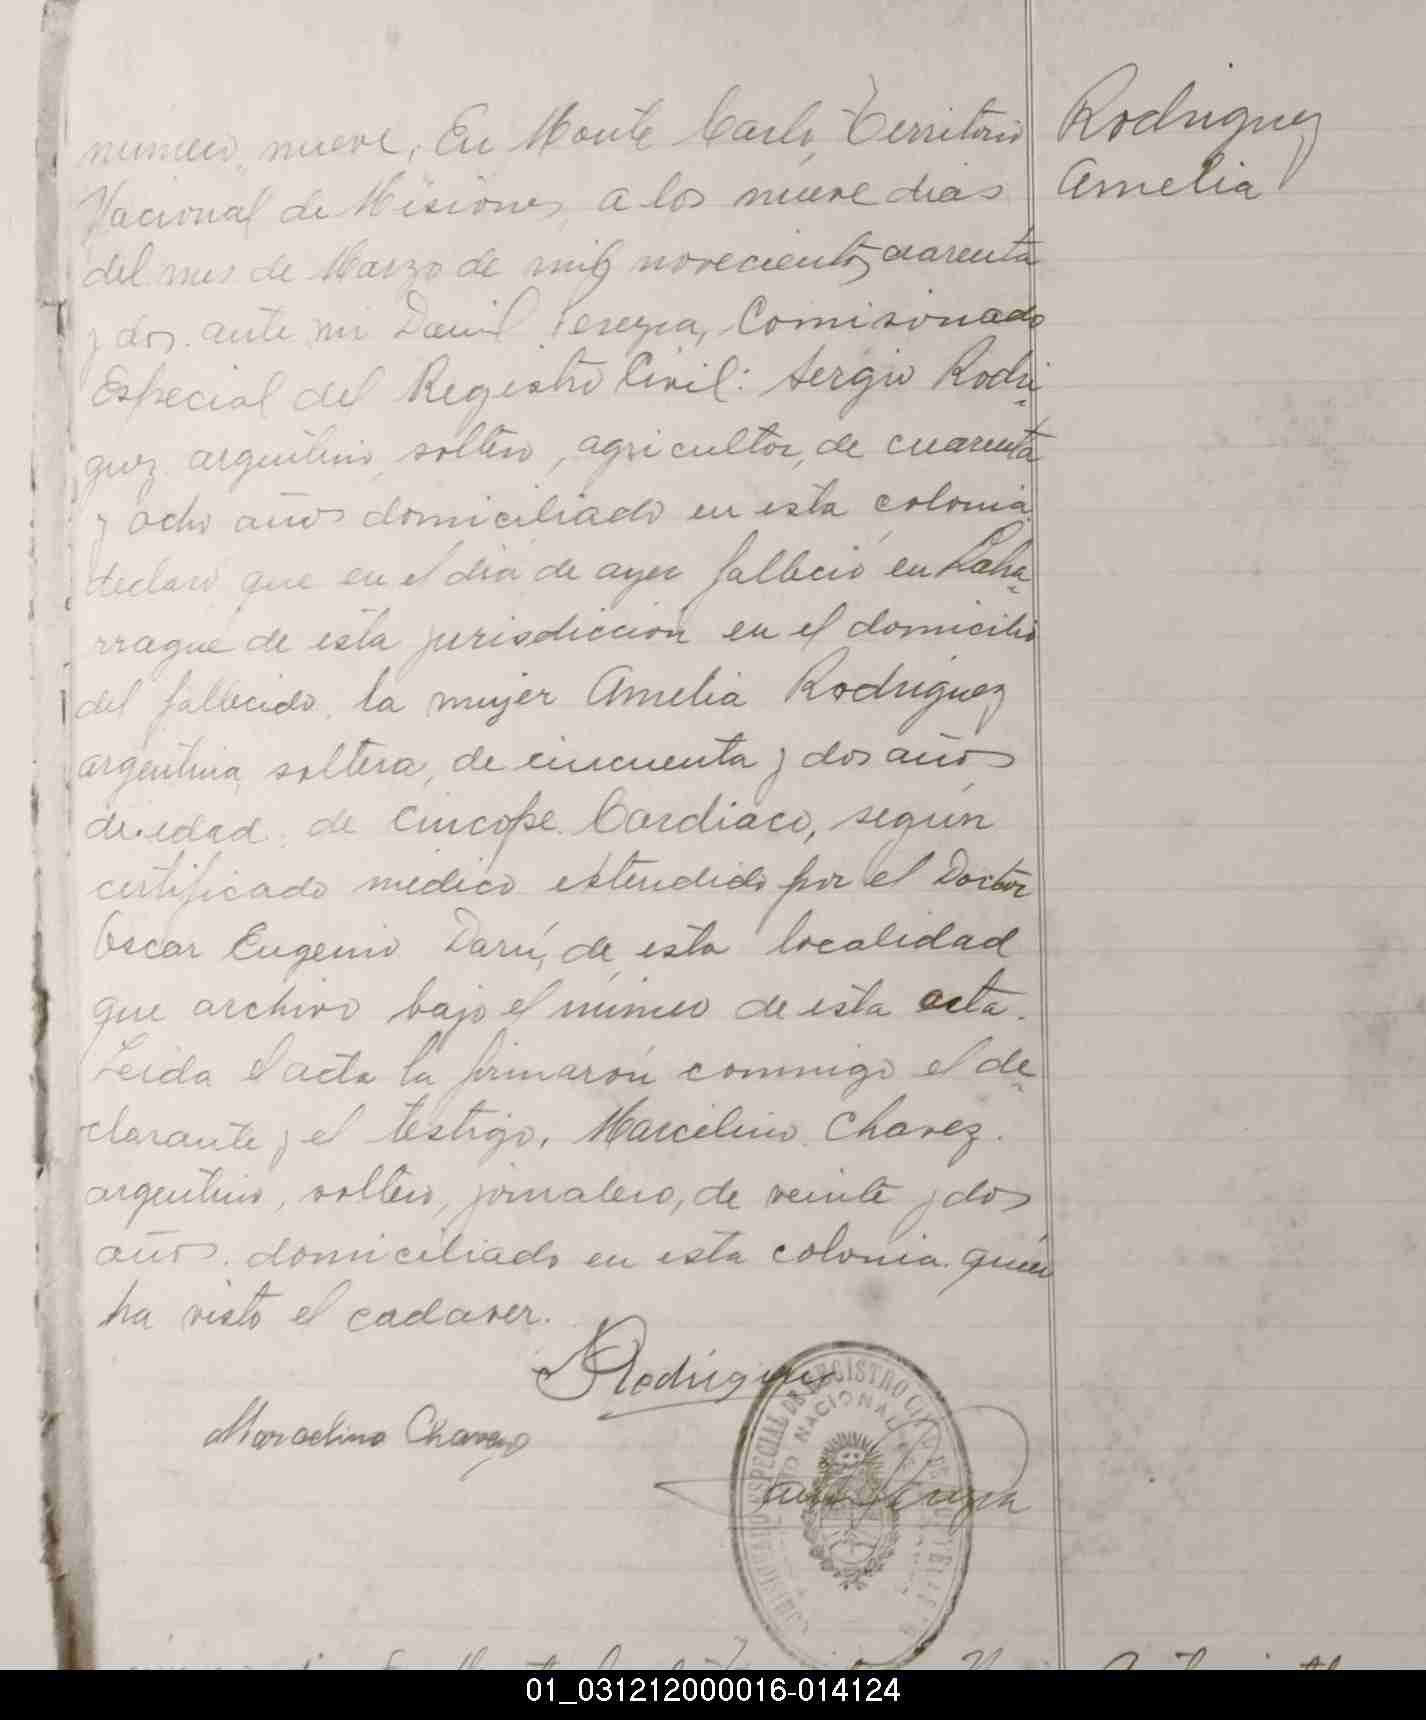 numero nueve, En Monte Carlo, Territorio
Rodriguez
Amelia
Nacional de Misiones, a los nueve dias
del mes de Marzo de mil novecientos cuarenta
y dos. ante mi Daniel Pereyra, Comisionado
Especial del Registro Civil: Sergio Rodri-
guez argentino, soltero, agricultor, de cuarenta
y ocho años domiciliado en esta colonia
declaró que en el dia de ayer falleció en Laha-
rrague de esta jurisdiccion en el domicilio
del fallecido. la mujer Amelia Rodriguez
argentina, soltera, de cincuenta y dos años
de edad. de Cincope Cardiaco, según
certificado médico extendido por el Doctor
Oscar Eugenio Darú, de esta localidad
que archivo bajo el número de esta acta.
Leida el acta la firmarón conmigo el de-
clarante y el testigo, Marcelino Chavez.
argentino, soltero, jornalero, de veinte y dos
años. domiciliado en esta colonia. quien
ha visto el cadaver.
SRodriguez
Marcelino Chavez
REGISTRO CIVIL
NACIONAL
01_031212000016-014124